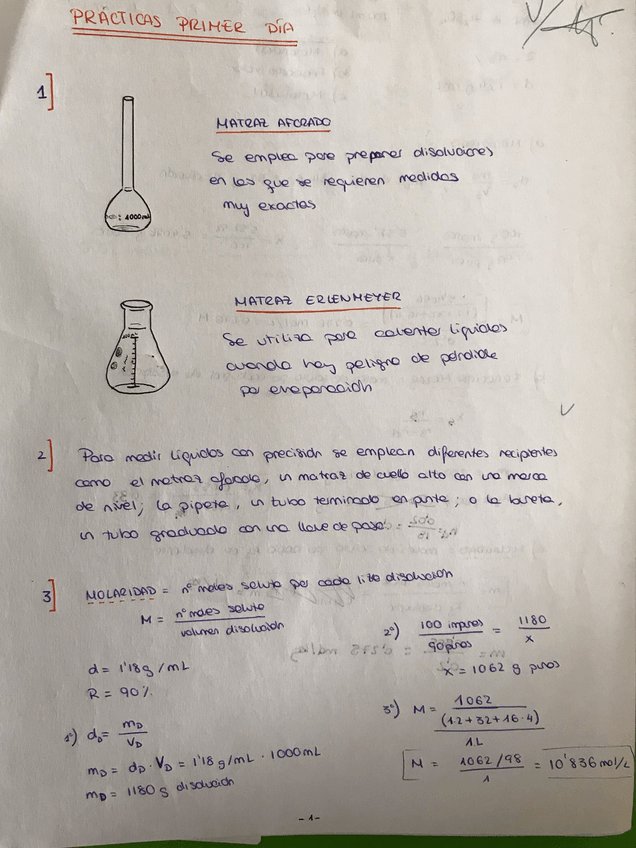 PRÁCTICAS PRIMER DÍA
1]
MATRAZ AFORADO
Se emplea para preparar disoluciones
en las que se requieren medidas
muy exactas
1000 ml
MATRAZ ERLENMEYER
Se utiliza para calentar líquidos
cuando hay peligro de pérdida
por evaporación
2] Para medir líquidos con precisión se emplean diferentes recipientes
como el matraz aforado, un matraz de cuello alto con una marca
de nivel; la pipeta, un tubo terminado en punta; o la bureta,
un tubo graduado con una llave de paso.
3] MOLARIDAD = nº moles soluto por cada litro disolución
M = nº moles soluto / volumen disolución
d = 1'18 g/mL
R = 90%
1º) d_D = m_D / V_D
m_D = d_D · V_D = 1'18 g/mL · 1000 mL
m_D = 1180 g disolución
2º) 100 impuros / 90 puros = 1180 / x
x = 1062 g puros
3º) M = 1062 / (1·2+32+16·4) / 1L
M = 1062/98 / 1 = 10'836 mol/L
- 1 -